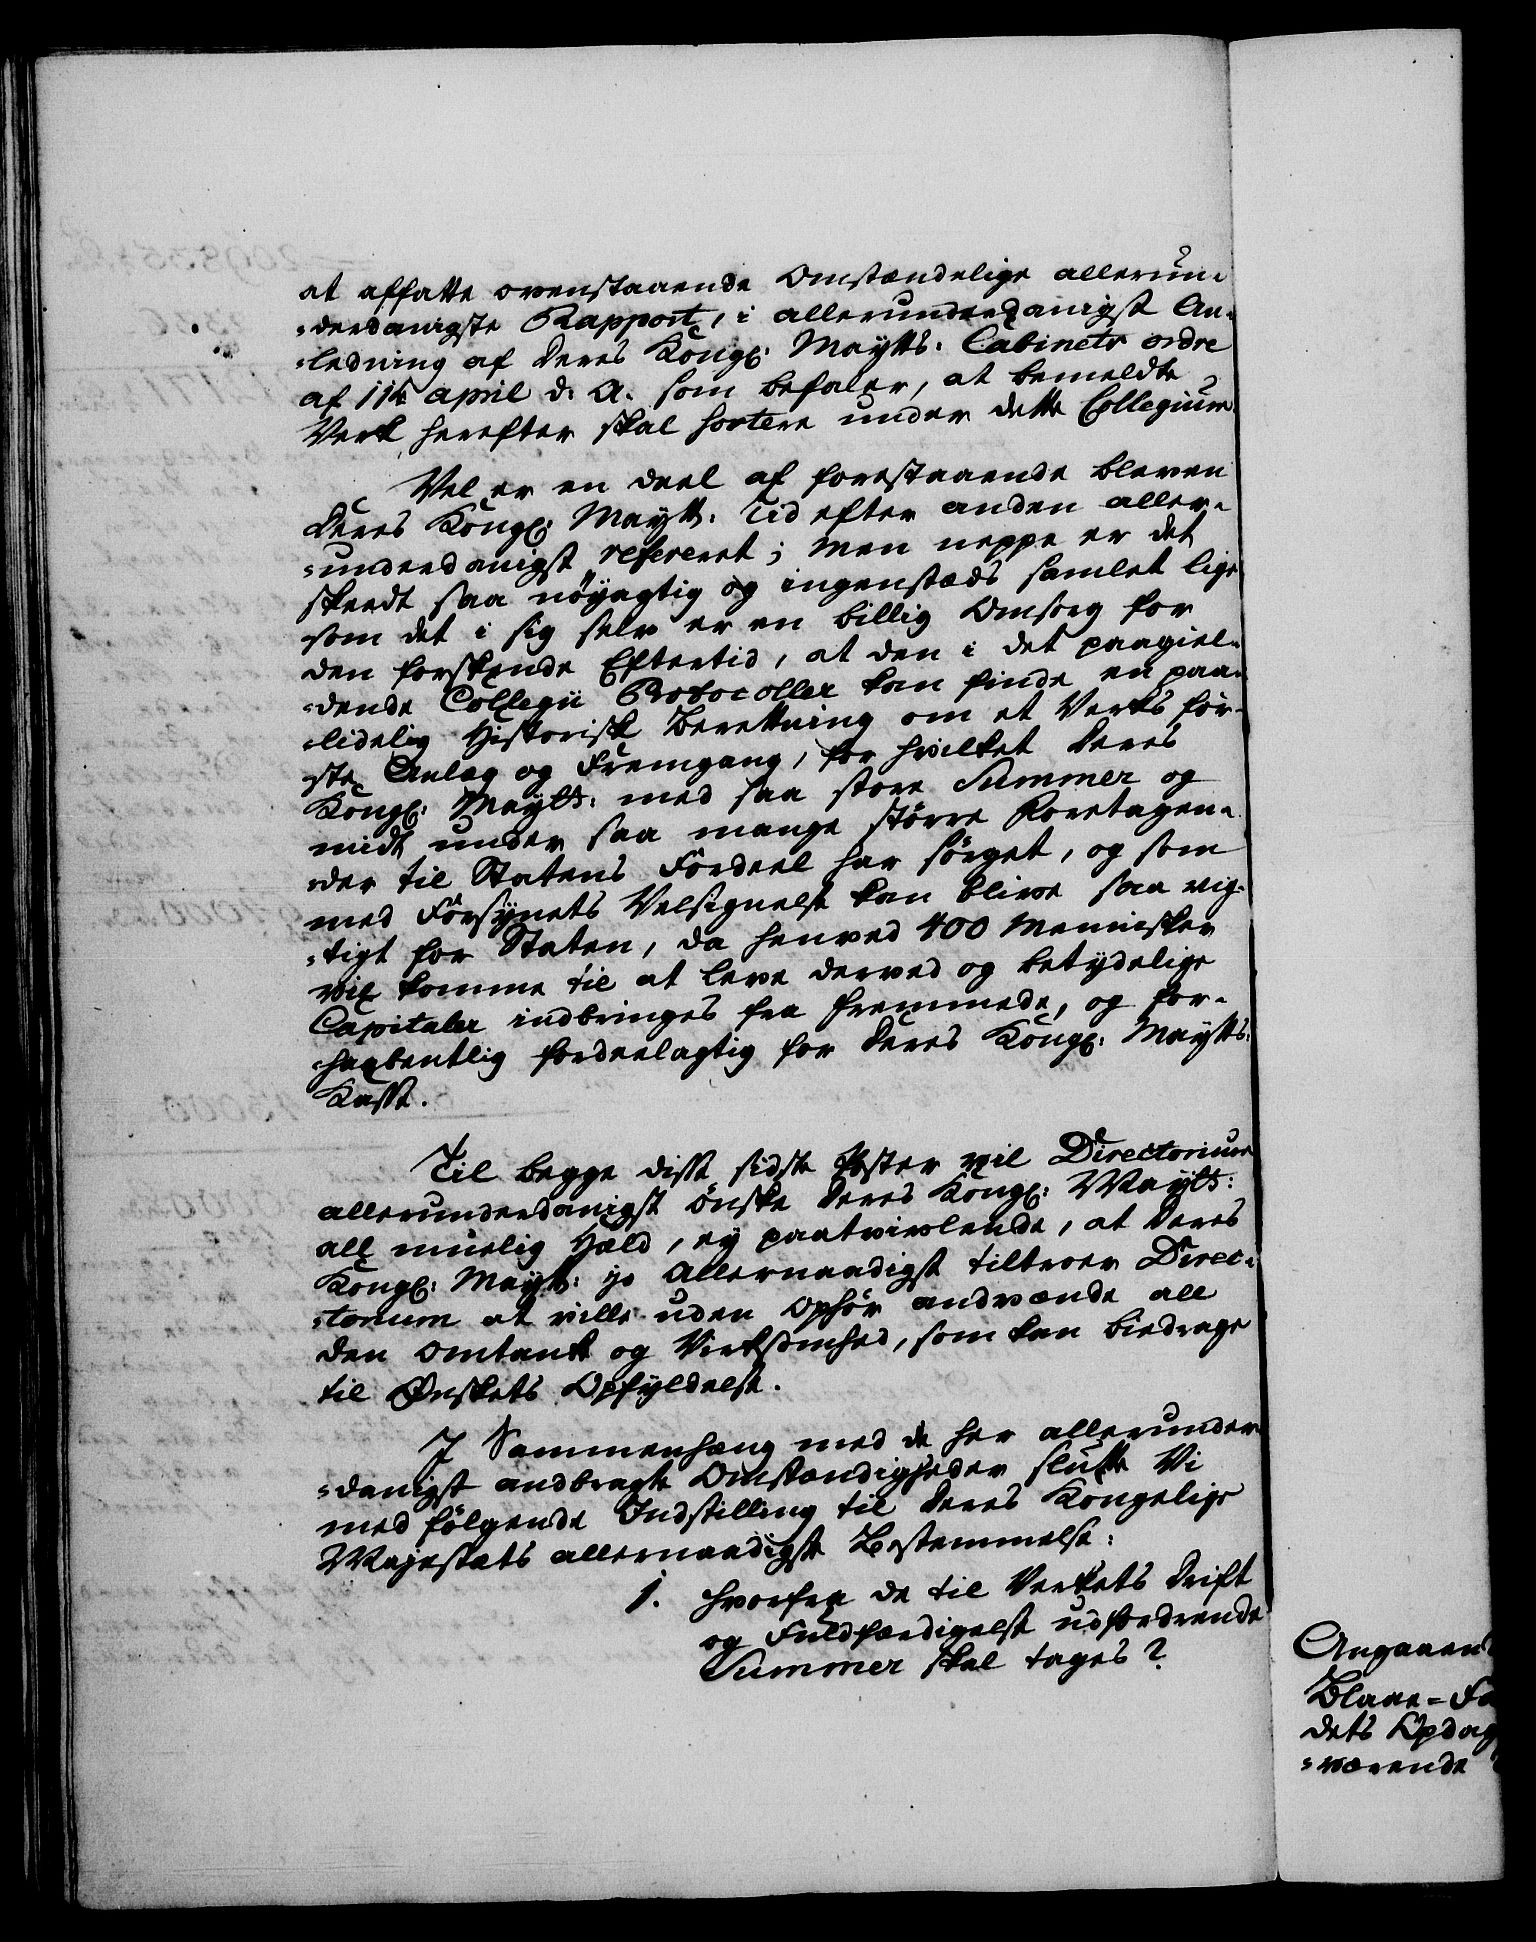 at affatte ovenstaaende omstændelige allerun-
=derdanigste Rapport, i allerunderdanigst An-
=ledning af Deres Kongl: Maytts: Cabinets ordre
af 11te april d: A. som befaler, at bemeldte
Verk herefter skal sortere under dette Collegium.
Vel er en deel af forestaaende bleven
Deres Kongl: Maytt: Tid efter anden aller-
=underdanigst refereret; men neppe er det
skeedt saa nöyagtig og ingenstæds samlet lige
som det i sig selv er en billig Omsorg for
den forskende Eftertid, at den i det paagiel-
=dende Collegii Protocoller kan finde en paa-
=lidelig Historisk Beretning om et Verks för-
ste Anlæg og Fremgang, for hvilket Deres
Kongl: Maytts: med saa store Summer og
midt under saa mange större Foretagen-
=der til Statens Fordeel har sörget, og som
med Forsynets Velsignelse kan blive saa vig-
=tigt for Staten, da henved 400 Mennisker
vil komme til at leve derved og betydelige
Capitaler indbringes fra fremmede, og for-
=haabentlig fordeelagtig for Deres Kongl: Maytts:
Kasse.
Til begge disse sidste Poster vil Directorium
allerunderdanigst önske Deres Kongl: Maytts:
all muelig Held, ey paatvivlende, at Deres
Kongl: Maytt: jo Allernaadigst tiltroer Direc-
=torium at ville uden Ophör andvænde all
den Omtank og Virksomhed, som kan biedrage
til Önskets Opfyldelse.
I Sammenhæng med de her allerunder-
=danigst andbragte Omstændigheder slutte Vi
med fölgende Indstilling til Deres Kongelige
Majestæts allernaadigste Bestemmelse:
1. hvorfra de til Verkets Drift
og Fuldfærdigelse udfordrende
Summer skal tages?
Angaaend
Blaae-Fa
dets Opdag
=værende